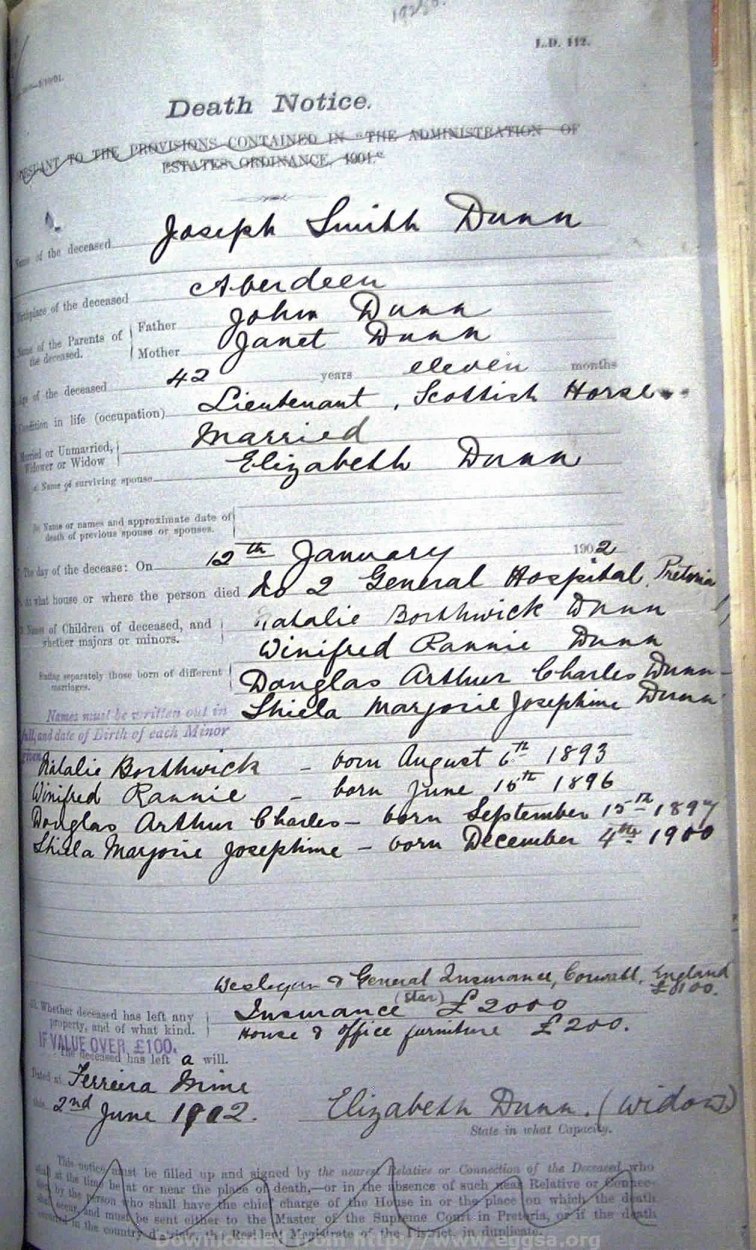 L.D. 112.
Death Notice.
TO THE PROVISIONS CONTAINED IN "THE ADMINISTRATION OF
ESTATES ORDINANCE, 1901."
Name of the deceased Joseph Smith Dunn
Birthplace of the deceased Aberdeen
Name of the Parents of the deceased. Father John Dunn
Mother Janet Dunn
Age of the deceased 42 years eleven months
Condition in life (occupation) Lieutenant, Scottish Horse
Married or Unmarried, Widower or Widow Married
Name of surviving spouse Elizabeth Dunn
Name or names and approximate date of
death of previous spouse or spouses.
The day of the decease: On 12th January 1902
At what house or where the person died No 2 General Hospital, Pretoria
Names of Children of deceased, and Natalie Borthwick Dunn
whether majors or minors. Winifred Rannie Dunn
Stating separately those born of different marriages. Douglas Arthur Charles Dunn
Names must be written out in Shiela Marjorie Josephine Dunn
full, and date of Birth of each Minor
given
Natalie Borthwick - born August 6th 1893
Winifred Rannie - born June 16th 1896
Douglas Arthur Charles - born September 15th 1897
Shiela Marjorie Josephine - born December 4th 1900
Wesleyan & General Insurance, England
£100.
Whether deceased has left any Insurance (Star) £2000
property, and of what kind. House & office furniture £200.
IF VALUE OVER £100.
The deceased has left a will.
Dated at Ferreira Mine
2nd June 1902. Elizabeth Dunn. (widow)
State in what Capacity.
This notice must be filled up and signed by the nearest Relative or Connection of the Deceased, who
shall at the time be at or near the place of death,—or in the absence of such near Relative or Connec-
tion, by the person who shall have the chief charge of the House in or the place on which the death
shall occur, and must be sent either to the Master of the Supreme Court in Pretoria, or if the death
occurred in the country districts, the Resident Magistrate of the District, in duplicate.
Downloaded from http://www.eggsa.org